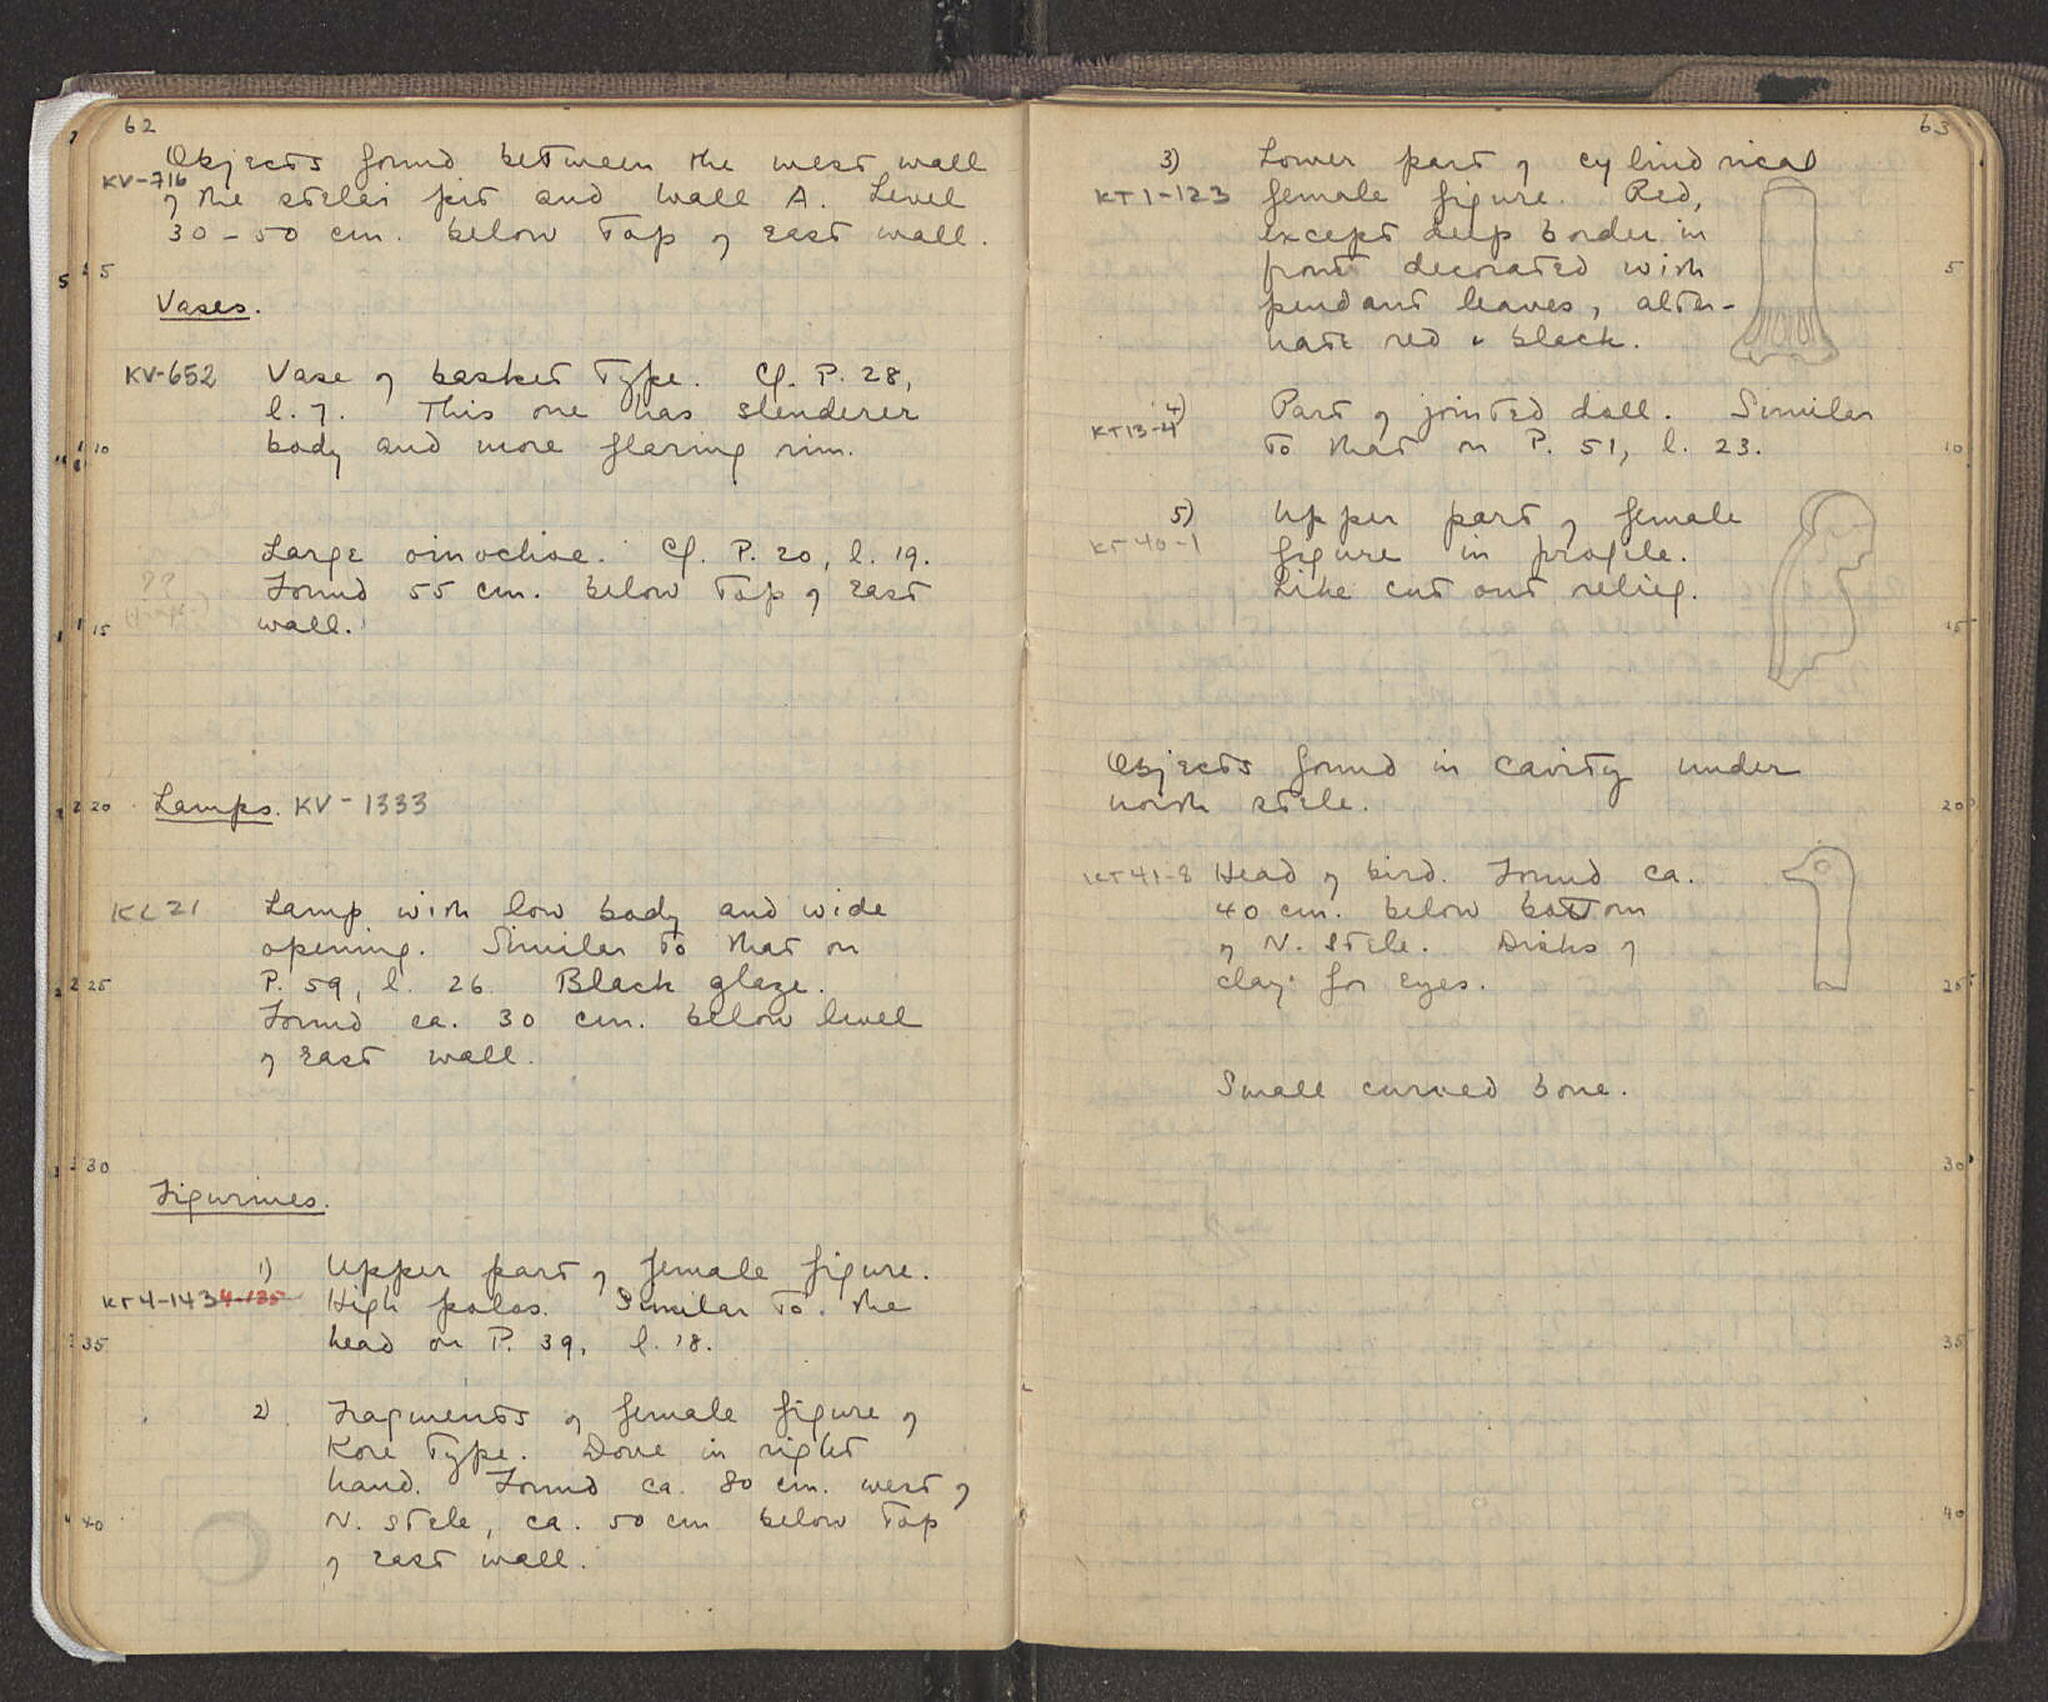 62
Objects found between the west wall
KV-716
of the stelai pit and Wall A. Level
30-50 cm. below top of east wall.
5
Vases.
KV-652 Vase of basket type. Cf. P. 28,
l. 7. This one has slenderer
body and more flaring rim.
10
Large oinochoe. Cf. P. 20, l. 19.
?? Found 55 cm. below top of east
wall.
15
20 Lamps. KV-1333
KL21 Lamp with low body and wide
opening. Similar to that on
25 P. 59, l. 26. Black glaze.
Found ca. 30 cm. below level
of east wall.
30
Figurines.
1) Upper part of female figure.
KT4-143 4-135 High polos. Similar to the
35 head on P. 39, l. 18.
2) Fragments of female figure of
Kore type. Dove in right
hand. Found ca. 80 cm. west of
40 N. stele, ca. 50 cm below top
of east wall.
63
3) Lower part of cylindrical
KT1-123 female figure. Red,
except deep border in
front decorated with 5
pendant leaves, alter-
nate red & black.
4) Part of jointed doll. Similar
KT13-4 to that on P. 51, l. 23. 10
5) Upper part of female
KT40-1 figure in profile.
Like cut out relief.
15
Objects found in cavity under
north stele. 20
KT41-8 Head of bird. Found ca.
40 cm. below bottom
of N. stele. Disks of
clay for eyes. 25
Small curved bone.
30
35
40